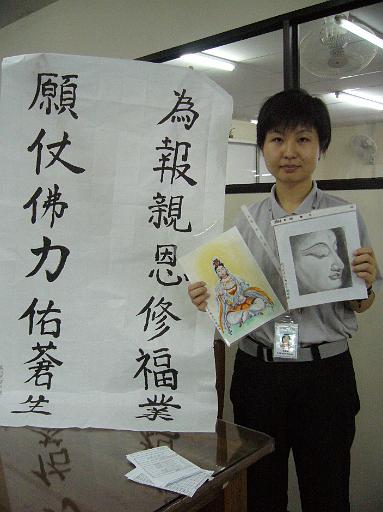 為報親恩修福業
願仗佛力佑蒼生